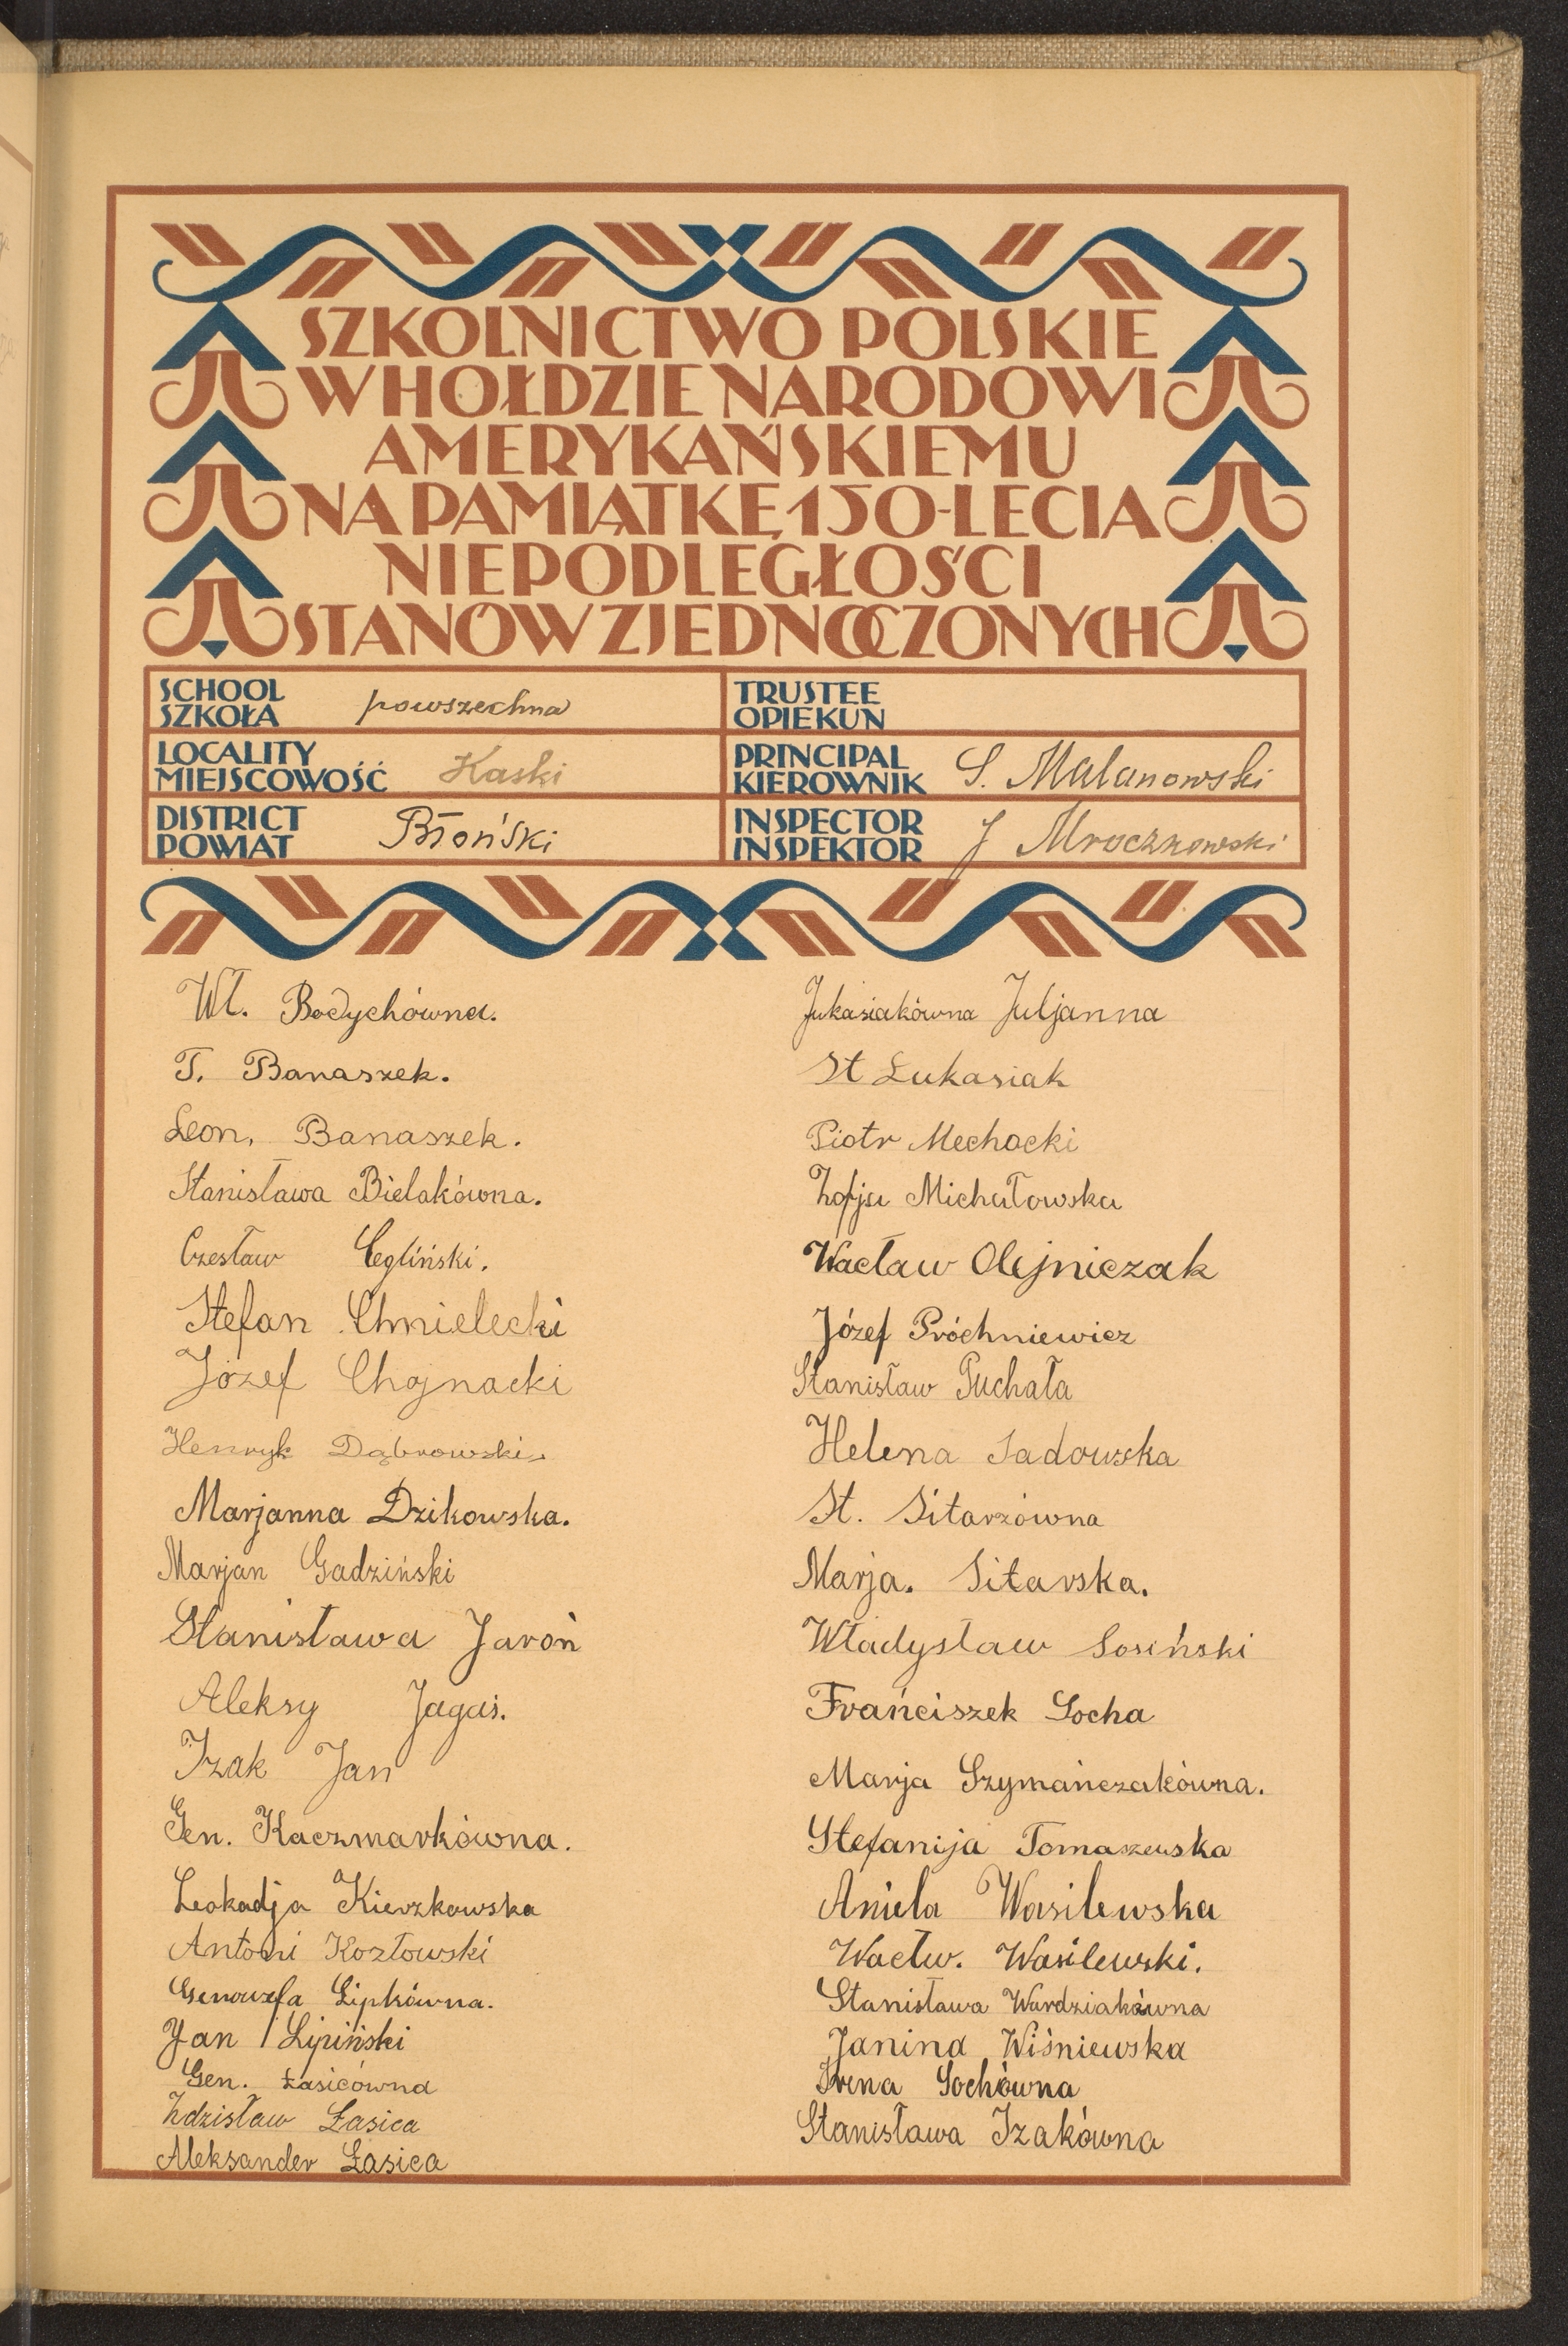 SZKOLNICTWO POLSKIE
W HOŁDZIE NARODOWI
AMERYKAŃSKIEMU
NA PAMIĄTKĘ 150-LECIA
NIEPODLEGŁOŚCI
STANÓW ZJEDNOCZONYCH
SCHOOL
SZKOŁA powszechna
TRUSTEE
OPIEKUN
LOCALITY
MIEJSCOWOŚĆ Kaski
PRINCIPAL
KIEROWNIK S. Malanowski
DISTRICT
POWIAT Błoński
INSPECTOR
INSPEKTOR J Mroczkowski
Wł. Bodychówna.
T. Banaszek.
Leon. Banaszek.
Stanisława Bielakówna.
Czesław Cegliński.
Stefan Chmielecki
Józef Chojnacki
Henryk Dąbrowski
Marjanna Dzikowska.
Marjan Gadziński
Stanisława Jaroń
Aleksy Jagaś.
Izak Jan
Gen. Kaczmarkówna.
Leokadja Kierzkowska
Antoni Kozłowski
Genowefa Lipkówna.
Jan Lipiński
Gen. Łasicówna
Zdzisław Łasica
Aleksander Łasica
Łukasiakówna Juljanna
St Łukasiak
Piotr Mechocki
Zofja Michałowska
Wacław Olejniczak
Józef Próchniewicz
Stanisław Puchała
Helena Sadowska
St. Sitarzówna
Marja. Sitarska.
Władysław Sosiński
Frańciszek Socha
Marja Szymańczakówna.
Stefanija Tomaszewska
Aniela Wasilewska
Wacłw. Wasilewski.
Stanisława Wardziakówna
Janina Wiśniewska
Irena Sochówna
Stanisława Izakówna